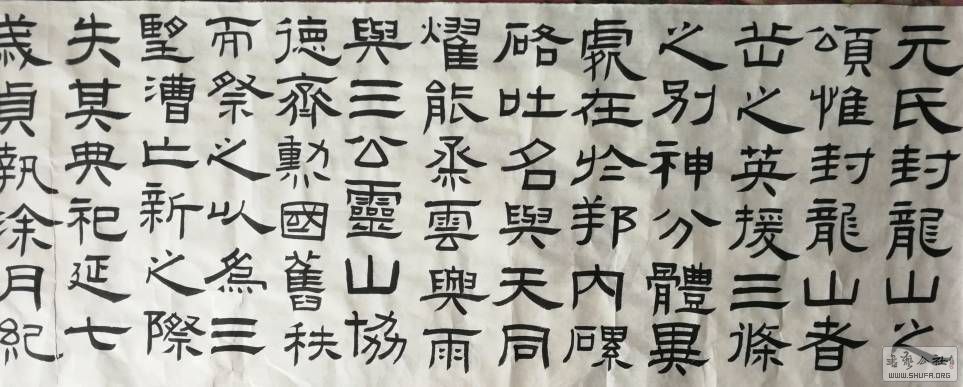 元氏封龍山之
頌惟封龍山者
岳之英援三條
之别神分體異
處在於邦内磥
硌吐名與天同
燿能烝雲興雨
與三公靈山協
德齊勳國舊秩
而祭之以爲三
望遭亡新之際
失其典祀延七
歲貞執涂月紀
WWW.SHUFA.ORG